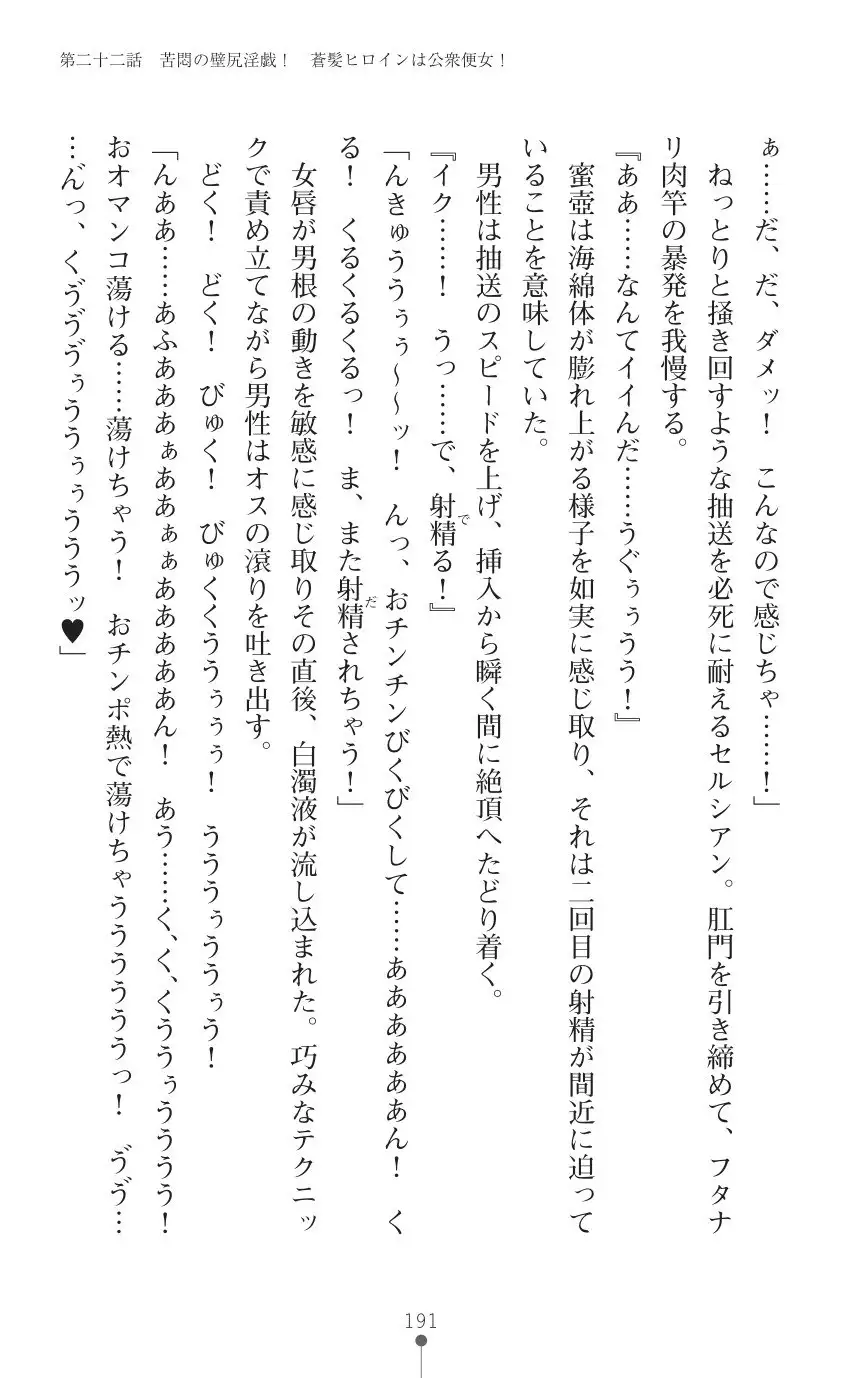 第二十二話　苦悶の壁尻淫戯！　蒼髪ヒロインは公衆便女！
ぁ……だ、だ、ダメッ！　こんなので感じちゃ……！」
　ねっとりと掻き回すような抽送を必死に耐えるセルシアン。肛門を引き締めて、フタナ
リ肉竿の暴発を我慢する。
『ああ……なんてイイんだ……うぐぅぅうう！』
　蜜壺は海綿体が膨れ上がる様子を如実に感じ取り、それは二回目の射精が間近に迫って
いることを意味していた。
　男性は抽送のスピードを上げ、挿入から瞬く間に絶頂へたどり着く。
『イク……！　うっ……で、射精る！』
「んきゅううぅぅ～～ッ！　んっ、おチンチンびくびくして……ああああああん！　く
る！　くるくるくるっ！　ま、また射精されちゃう！」
　女唇が男根の動きを敏感に感じ取りその直後、白濁液が流し込まれた。巧みなテクニッ
クで責め立てながら男性はオスの滾りを吐き出す。
　どく！　どく！　びゅく！　びゅくくううぅぅぅ！　うううぅううぅう！
「んああ……あふあああぁああぁぁああああああん！　あう……く、く、くううぅうううう！
おオマンコ蕩ける……蕩けちゃう！　おチンポ熱で蕩けちゃうううううううっ！　ゔゔ…
…ん゙っ、くゔゔゔぅううぅぅうううッ♥」
191